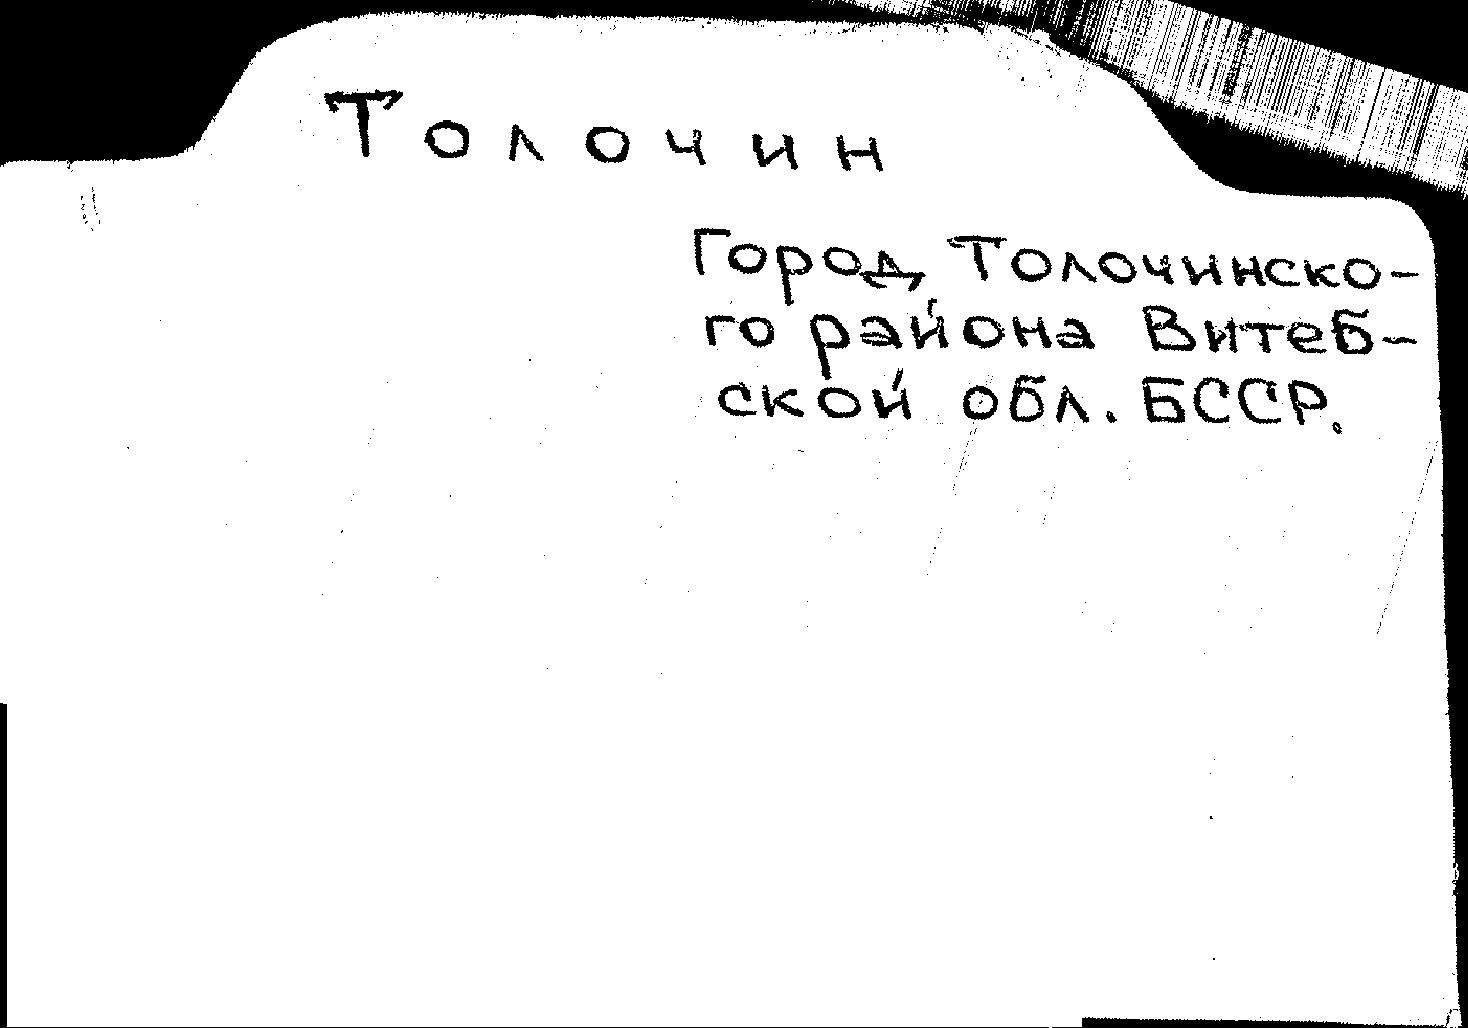 Толочин
Город Толочинско-
го района Витеб-
ской обл. БССР.